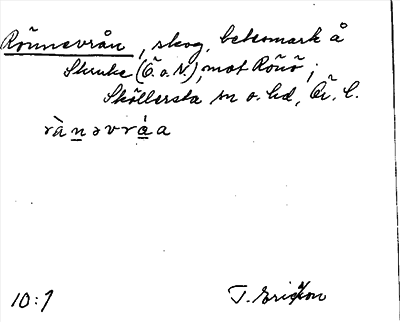 Rönnevrån, skog, betesmark å
Skruke (Ö. o. N), mot RöNö;
Sköllersta sn o. hd, Ör. l.
ràn̲əvrá̲a
10:1 T. Ericson